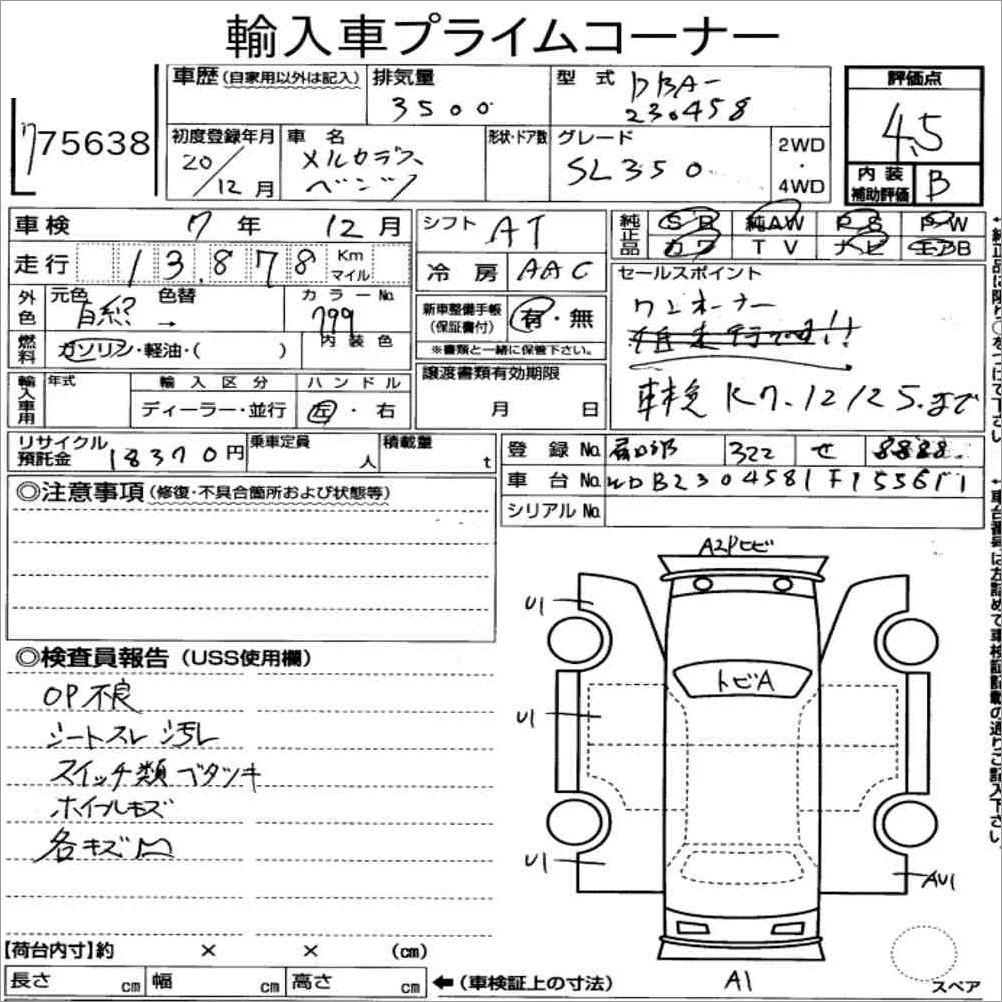 輸入車プライムコーナー
775638
車歴(自家用以外は記入)
排気量 3500
型式 DBA-230458
評価点 4.5
内装補助評価 B
初度登録年月 20/12月
車名 メルセデス ベンツ
形状・ドア数
グレード SL350
2WD・4WD
車検 7年 12月
シフト AT
純正品 SR 純AW PS PW
カワ TV ナビ エアB
走行 13,878 Km マイル
冷房 AAC
セールスポイント
ワンオーナー
車検 R7.12/25.まで
外色 元色 白 色替 → カラーNo. 799
内装色
新車整備手帳(保証書付) 有・無
※書類と一緒に保管下さい。
燃料 ガソリン・軽油・( )
輸入車用 年式 輸入区分 ディーラー・並行 ハンドル 左・右
譲渡書類有効期限 月 日
リサイクル預託金 18370円
乗車定員 人
積載量 t
登録No. 322 せ 8888
車台No. WDB2304581F1556
シリアルNo.
◎注意事項(修復・不具合箇所および状態等)
◎検査員報告(USS使用欄)
OP不良
シートスレ 汚レ
スイッチ類ベタツキ
ホイールキズ
各キズ凹
A2Pヒビ
U1
トビA
U1
U1
AU1
A1
スペア
【荷台内寸】約 × × (cm)
長さ cm 幅 cm 高さ cm ←(車検証上の寸法)